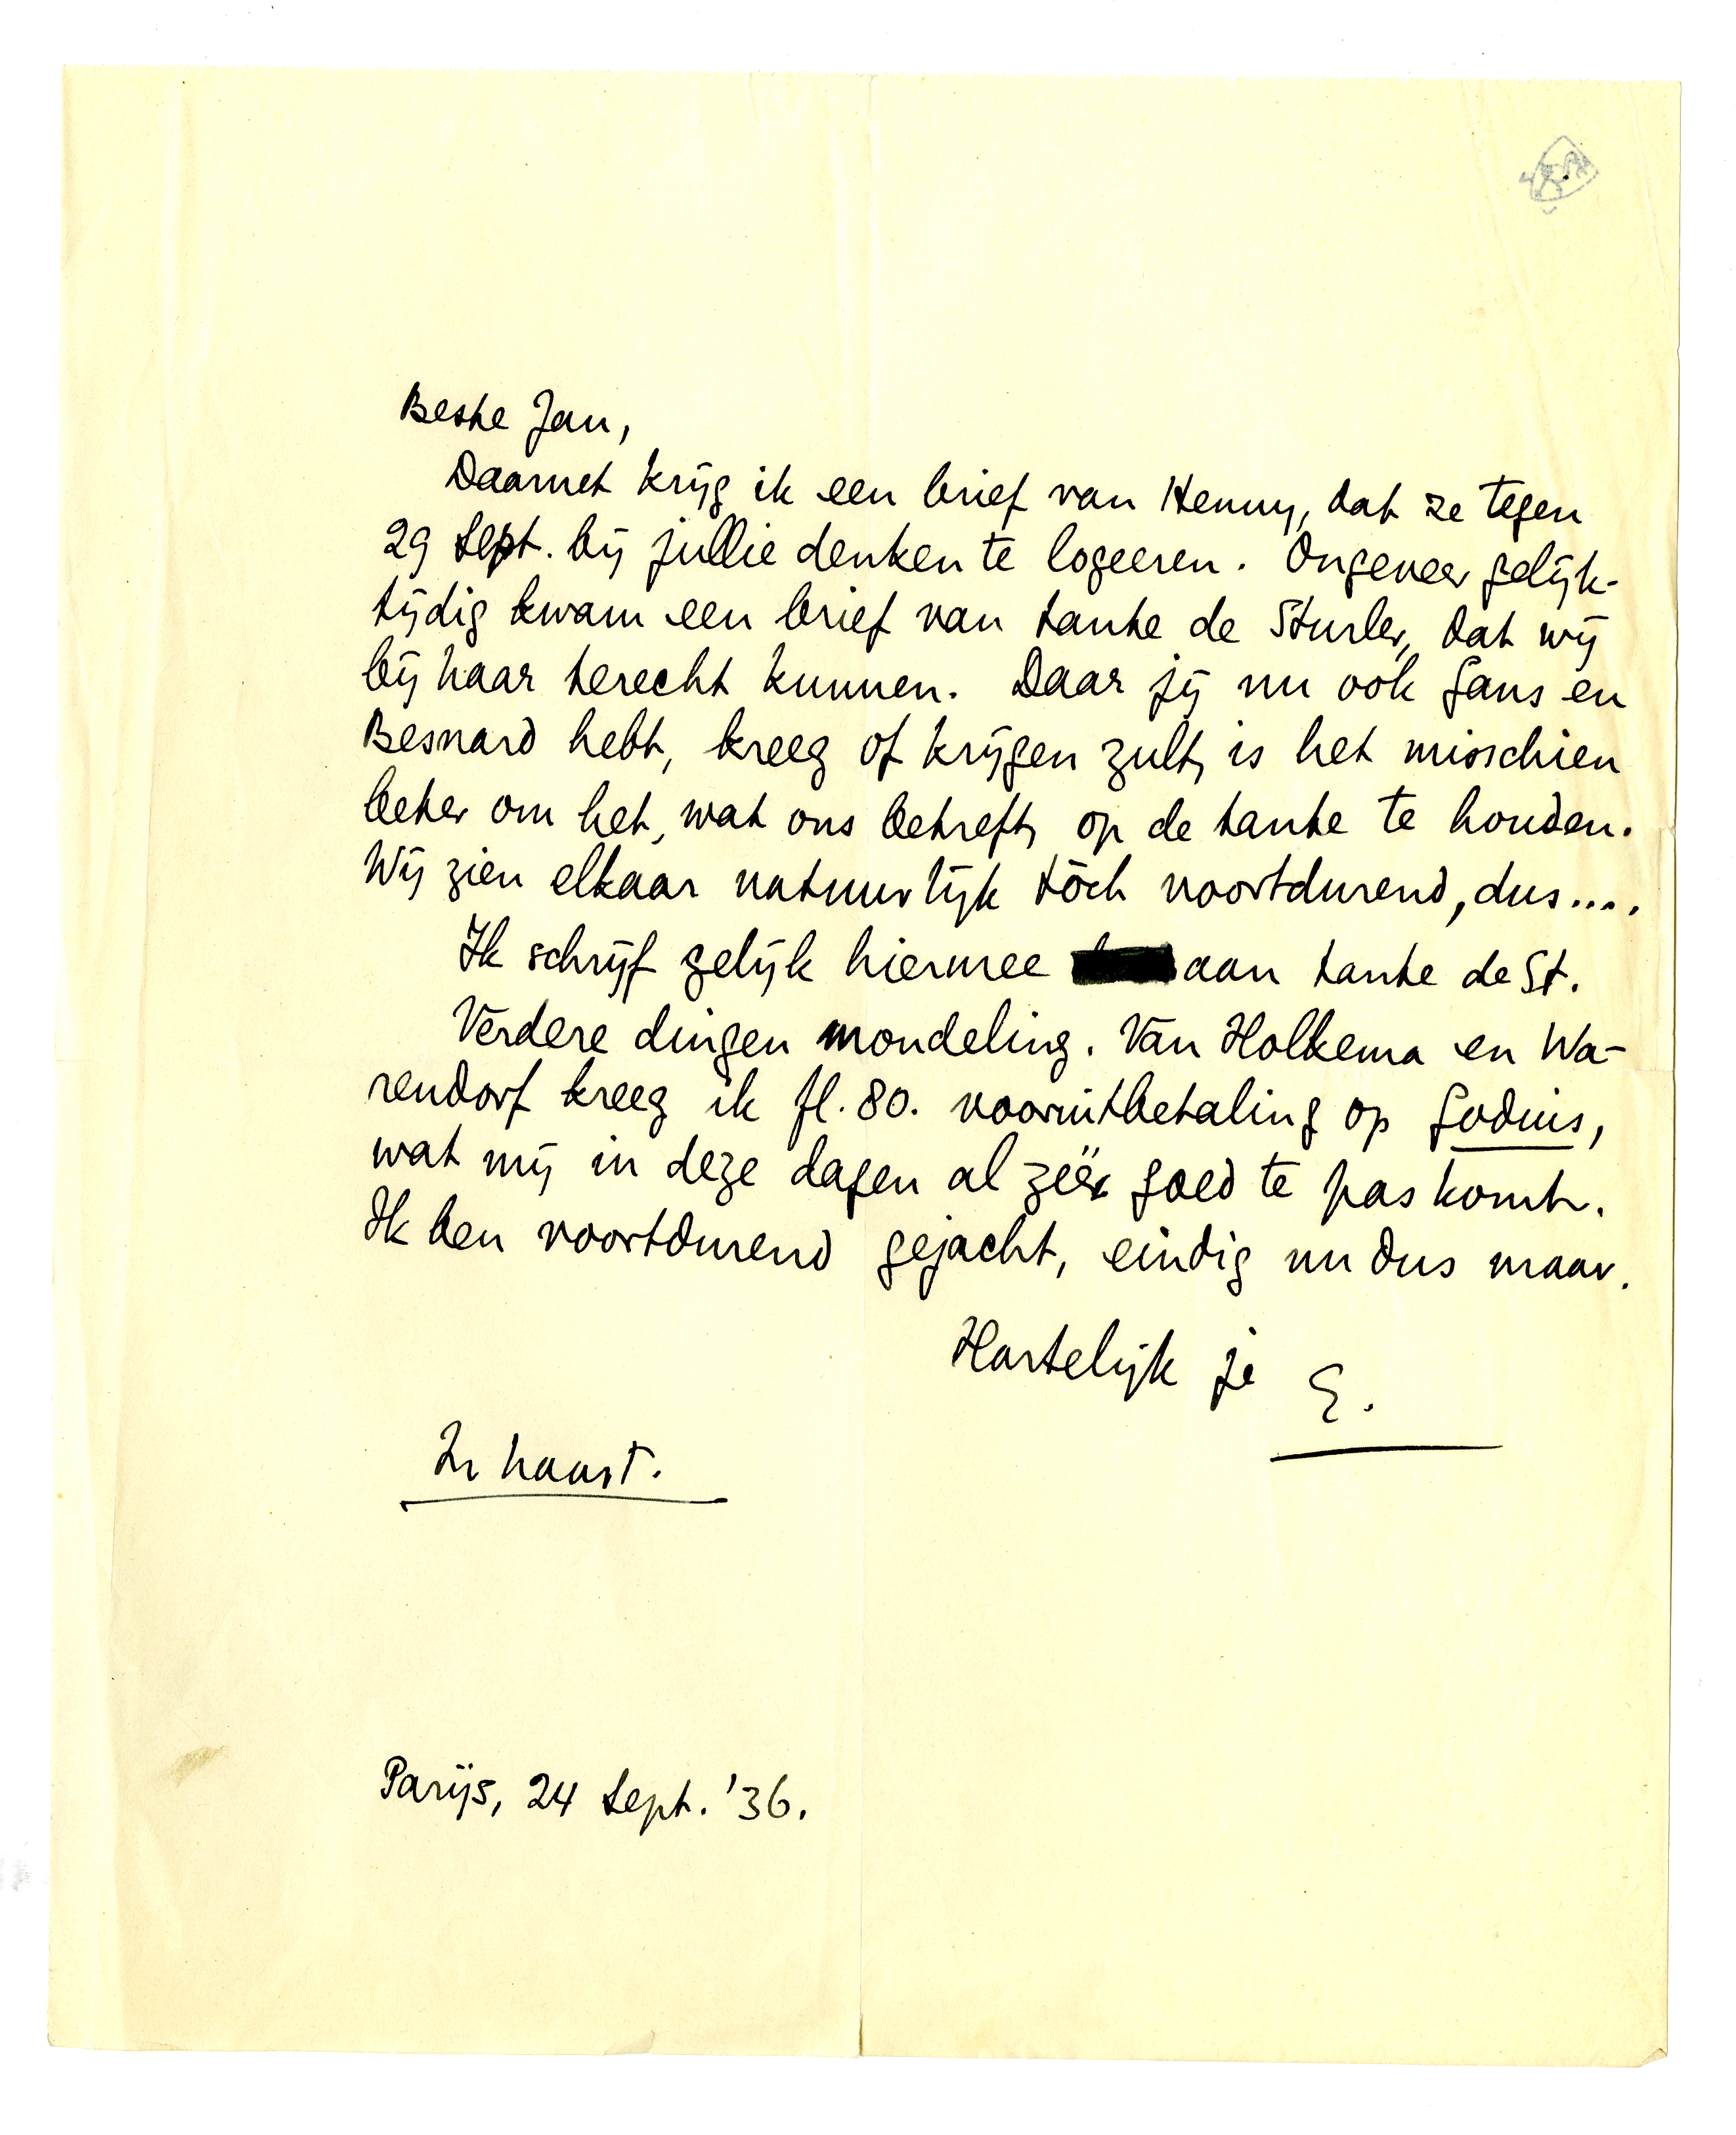 Beste Jan,
Daarnet krijg ik een brief van Henny, dat ze tegen
29 Sept. bij jullie denken te logeeren. Ongeveer gelijk-
tijdig kwam een brief van tante de Sturler, dat wij
bij haar terecht kunnen. Daar jij nu ook Gans en
Besnard hebt, kreeg of krijgen zult, is het misschien
beter om het, wat ons betreft, op de tante te houden.
Wij zien elkaar natuurlijk tòch voortdurend, dus....
Ik schrijf gelijk hiermee aan tante de St.
Verdere dingen mondeling. Van Holkema en Wa-
rendorf kreeg ik fl. 80. vooruitbetaling op Goduis,
wat mij in deze dagen al zéér goed te pas komt.
Ik ben voortdurend gejacht, eindig nu dus maar.
Hartelijk je E.
In haast.
Parijs, 24 Sept. '36.